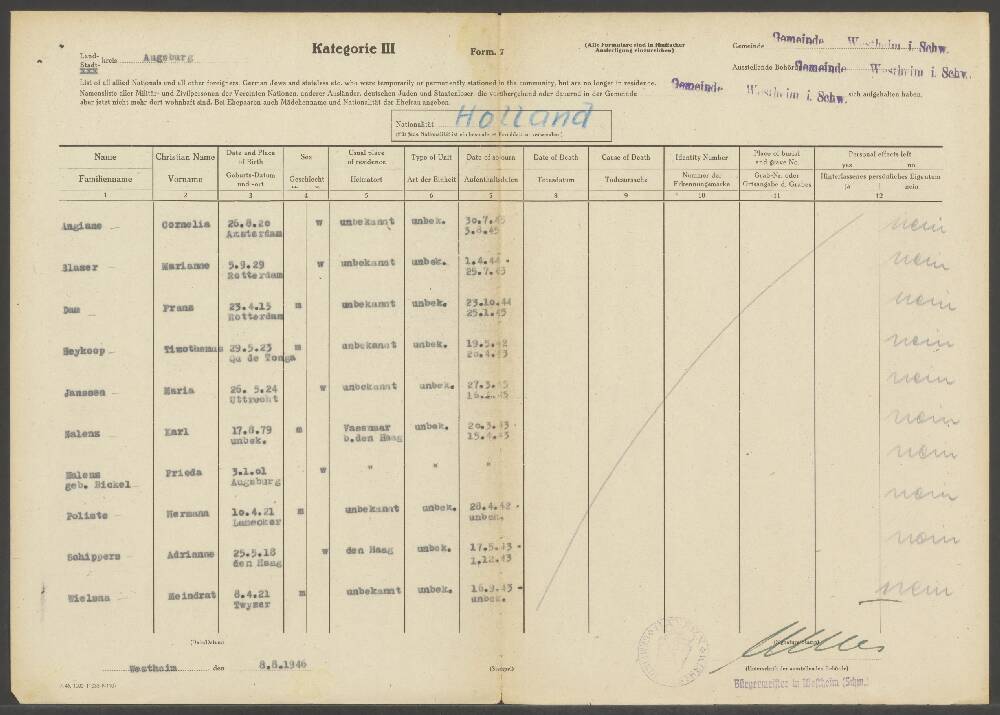 Kategorie III
Form. 7
(Alle Formulare sind in fünffacher
Ausfertigung einzureichen)
Land-
Stadt- kreis Augsburg
xxx
Gemeinde Gemeinde Westheim i. Schw.
Ausstellende Behörde Gemeinde Westheim i. Schw.
List of all allied Nationals and all other foreigners, German Jews and stateless etc. who were temporarily or permanently stationed in the community, but are no longer in residence.
Namensliste aller Militär- und Zivilpersonen der Vereinten Nationen, anderer Ausländer, deutschen Juden und Staatenloser, die vorübergehend oder dauernd in der Gemeinde Gemeinde Westheim i. Schw. sich aufgehalten haben,
aber jetzt nicht mehr dort wohnhaft sind. Bei Ehepaaren auch Mädchenname und Nationalität der Ehefrau angeben.
Nationalität Holland
(Für jede Nationalität ist ein besonderes Formblatt zu verwenden)
Name Christian Name Date and Place of Birth Sex Usual place of residence Type of Unit Date of sojourn Date of Death Cause of Death Identity Number Place of burial and grave No. Personal effects left yes no
Familienname Vorname Geburts-Datum und -ort Geschlecht Heimatort Art der Einheit Aufenthaltsdaten Todesdatum Todesursache Nummer der Erkennungsmarke Grab-Nr. oder Ortsangabe d. Grabes Hinterlassenes persönliches Eigentum ja nein
1 2 3 4 5 6 7 8 9 10 11 12
Angiane Cornelia 26.8.20 w unbekannt unbek. 30.7.45 nein
Amsterdam 3.8.45
Blaser Marianne 5.9.29 w unbekannt unbek. 1.4.44 - nein
Rotterdam 25.7.43
Dam Frans 23.4.15 m unbekannt unbek. 23.10.44 nein
Rotterdam 25.1.45
Heykoop Timotheus 29.5.23 m unbekannt unbek. 19.5.42 nein
Qu de Tonga 20.4.43
Janssen Maria 26. 5.24 w unbekannt unbek. 27.3.45 nein
Uttrecht
Malens Karl 17.8.79 m Vassmar unbek. 20.3.43 - nein
unbek. b.den Haag 15.4.43
nein
Malens Frieda 3.1.01 w " " "
geb. Bickel Augsburg
Poliste Hermann 10.4.21 m unbekannt unbek. 28.4.42 - nein
unbek.
Schippers Adrianne 25.5.18 w den Haag unbek. 17.5.43 - nein
den Haag 1.12.43
Wielsma Meindrat 8.4.21 m unbekannt unbek. 16.9.43 - nein
Twyzer unbek.
(Date/Datum)
Westheim den 8.8.1946
(Stempel)
(Signature/Stamp)
(Unterschrift der ausstellenden Behörde)
Bürgermeister in Westheim (Schw.)